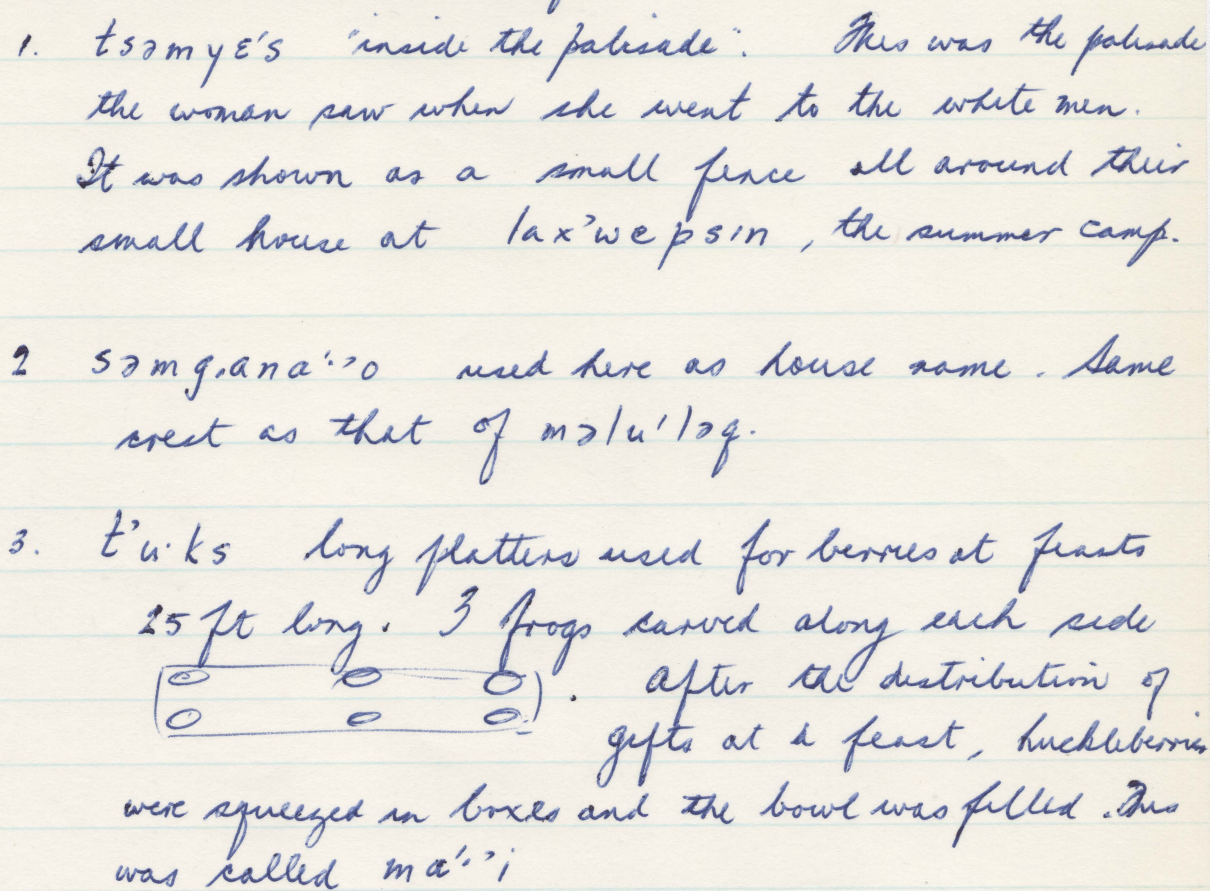 1. tsəmyɛ's "inside the palisade". This was the palisade
the woman saw when she went to the white men.
It was shown as a small fence all around their
small house at lax'wɛpsin, the summer camp.
2 səmg.ana'·'o used here as house name. Same
crest as that of məlu'ləq.
3. t'u·ks long platters used for berries at feasts
25 ft long. 3 frogs carved along each side
. After the distribution of
gifts at a feast, huckleberries
were squeezed in boxes and the bowl was filled. This
was called ma'·'i